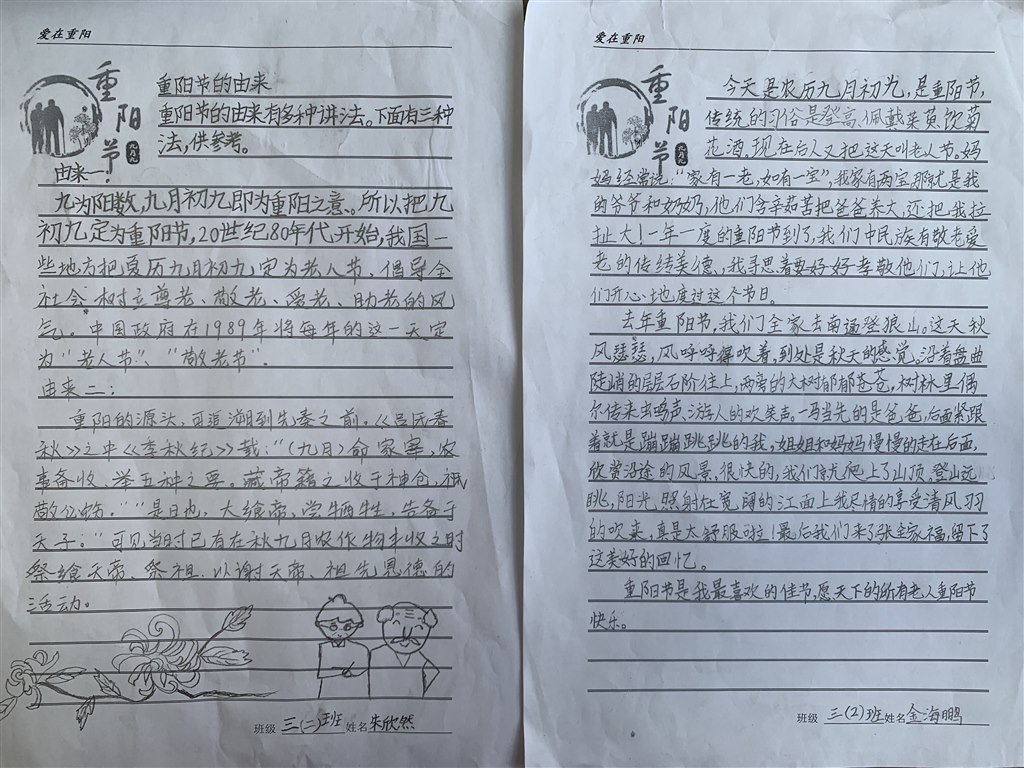 爱在重阳
重阳节
九月九
重阳节的由来
重阳节的由来有多种讲法。下面有三种
法,供参考。
由来一:
九为阳数,九月初九即为重阳之意、。所以把九
初九定为重阳节,20世纪80年代开始,我国一
些地方把夏历九月初九定为老人节、倡导全
社会树立尊老、敬老、爱老、助老的风
气。中国政府在1989年将每年的这一天定
为"老人节"、"敬老节"。
由来二:
重阳的源头,可追溯到先秦之前。《吕氏春
秋》之中《季秋纪》载:"(九月)命家宰,农
事备收、举五种之要。藏帝籍之收于神仓,祗
敬必饬。""是日也,大飨帝,尝牺牲,告备于
天子。"可见当时已有在秋九月农作物丰收之时
祭飨天帝、祭祖,以谢天帝、祖先恩德的
活动。
班级 三(二)班 姓名 朱欣然
爱在重阳
重阳节
九月九
今天是农历九月初九,是重阳节,
传统的习俗是登高、佩戴茱萸、饮菊
花酒。现在后人又把这天叫老人节。妈
妈经常说:"家有一老,如有一宝",我家有两宝那就是我
的爷爷和奶奶,他们含辛茹苦把爸爸养大,还把我拉
扯大!一年一度的重阳节到了,我们中民族有敬老爱
老的传统美德,我寻思着要好好孝敬他们,让他
们开心地度过这个节日。
去年重阳节,我们全家去南通登狼山。这天秋
风瑟瑟,风呼呼得吹着,到处是秋天的感觉,沿着盘曲
陡峭的层层石阶往上,两旁的大树郁郁苍苍,树林里偶
尔传来鸟鸣声、游人的欢笑声。一马当先的是爸爸,后面紧跟
着就是蹦蹦跳跳的我,姐姐和妈妈慢慢的走在后面,
欣赏沿途的风景,很快的,我们就爬上了山顶,登山远
眺,阳光照射在宽阔的江面上我尽情的享受清风
的吹来,真是太舒服啦!最后我们来了张全家福,留下了
这美好的回忆。
重阳节是我最喜欢的佳节,愿天下的所有老人重阳节
快乐。
班级 三(2)班 姓名 金海鹏